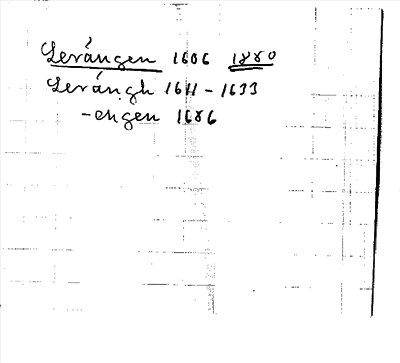 Lerången 1606 1880
Lerångh 1611 - 1633
-engen 1686